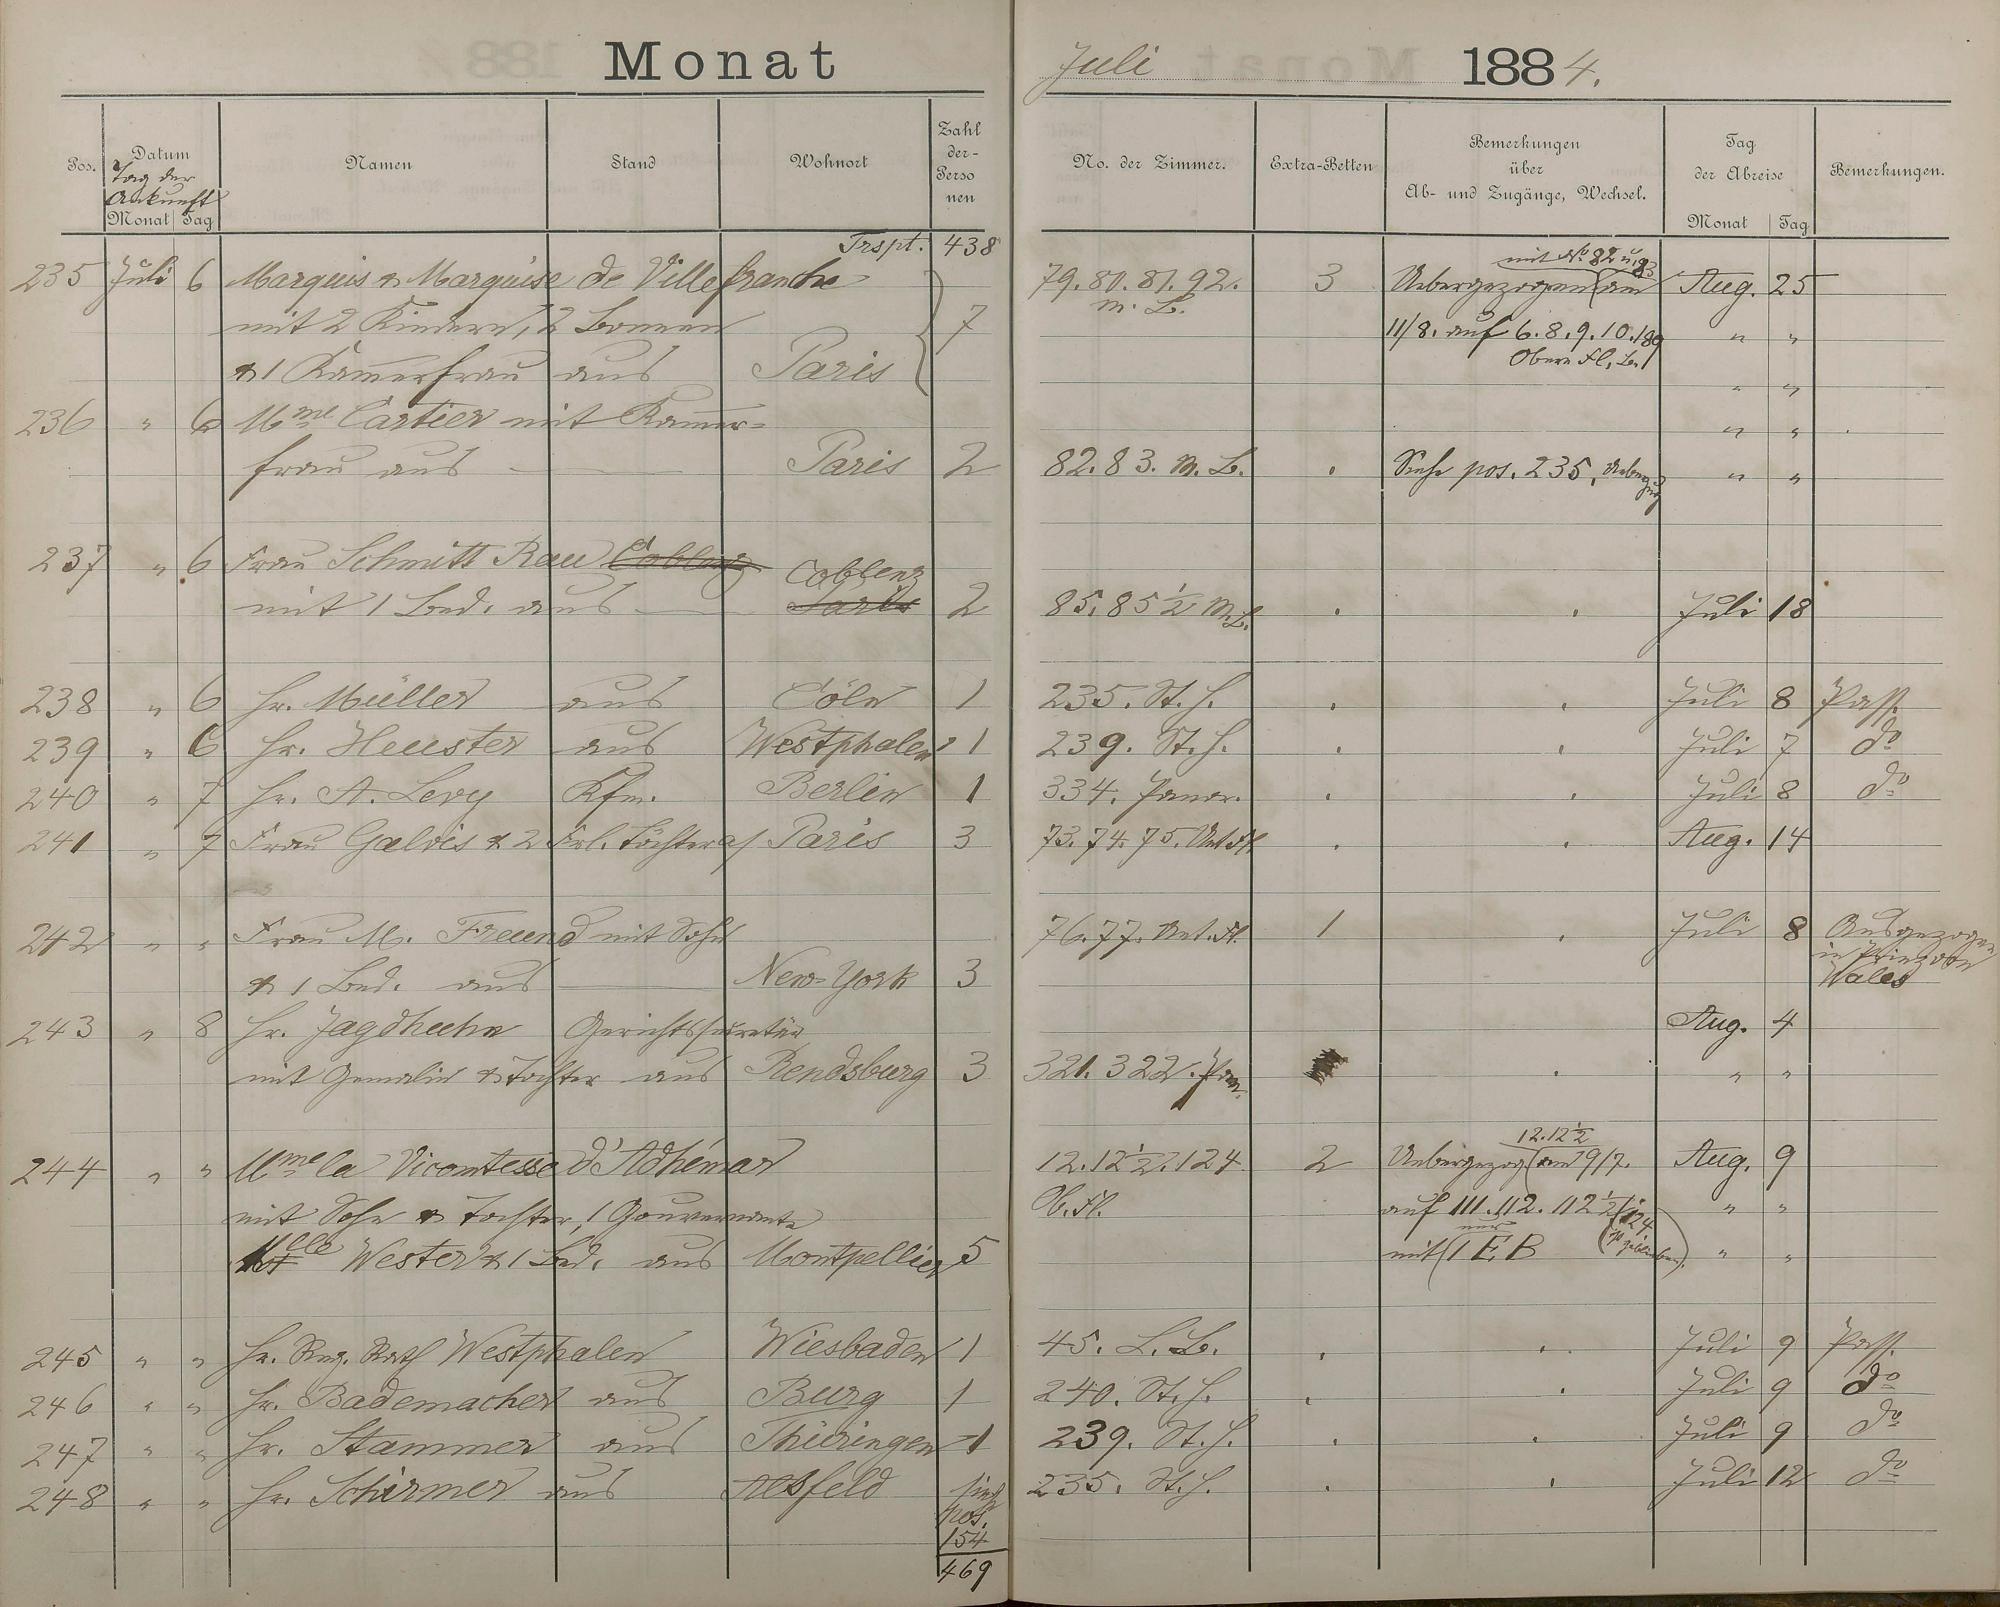 Monat
Juli 1884.
Pos. Datum Namen Stand Wohnort Zahl der Perso nen No. der Zimmer. Extra-Betten Bemerkungen über Ab- und Zugänge, Wechsel. Tag der Abreise Bemerkungen.
Tag der
Ankunft
Monat Tag Monat Tag
Trspt. 438
mit No 82 u. 83
235 Juli 6 Marquis & Marquise de Villefranche 79. 80. 81. 92. 3 Uebergezogen am Aug. 25
m. B.
mit 2 Kindern, 2 Bonnen 7 11/8. auf 6. 8. 9. 10. " "
& 1 Kammerfrau aus Paris Obere Fl. " "
236 " 6 Mme Cartier mit Kammer= " "
frau aus Paris 2 82. 83. M. B. Siehe pos. 235, " "
237 " 6 Frau Schmitt Rau Coblenz
Coblenz
mit 1 Bed. aus Paris 2 85. 85 1/2 M. B. Juli 18
238 " 6 Hr. Müller aus Cöln 1 235. St. H. Juli 8 Pass.
239 " 6 Hr. Heuster aus Westphalen 1 239. St. H. Juli 7 do
240 " 7 Hr. A. Levy Kfm. Berlin 1 334. Panor. Juli 8 do
241 " 7 Frau Galvis & 2 Frl. Töchter a/ Paris 3 73. 74. 75. Unt. Fl. Aug. 14
242 " " Frau M. Freund mit Sohn 76. 77. Unt. Fl. 1 Juli 8 Ausgezogen
in Prinz of
& 1 Bed. aus New-York 3 Wales
243 " 8 Hr. Jagdhuhn Gerichtssecretär Aug. 4
mit Gemalin & Tochter aus Rendsburg 3 321. 322. Pan. " "
12. 12 1/2
244 " " Mme la Vicomtesse d'Adhémar 12. 12 1/2. 124 2 Uebergezog am 9/7. Aug. 9
mit Sohn & Tochter, 1 Gouvernante Ob. Fl. auf 111. 112. 112 1/2 (124 " "
nur
Mlle Wester & 1 Bed. aus Montpellier 5 mit 1 E. B " "
245 " " Hr. Reg. Rath Westphalen Wiesbaden 1 45. L. B. Juli 9 Pass.
246 " " Hr. Bademacher aus Burg 1 240. St. H. Juli 9 do
247 " " Hr. Stammer aus Thüringen 1 239. St. H. Juli 9 do
248 " " Hr. Schirmer aus Alsfeld 235. St. H. Juli 12 do
siehe
pos.
154
469